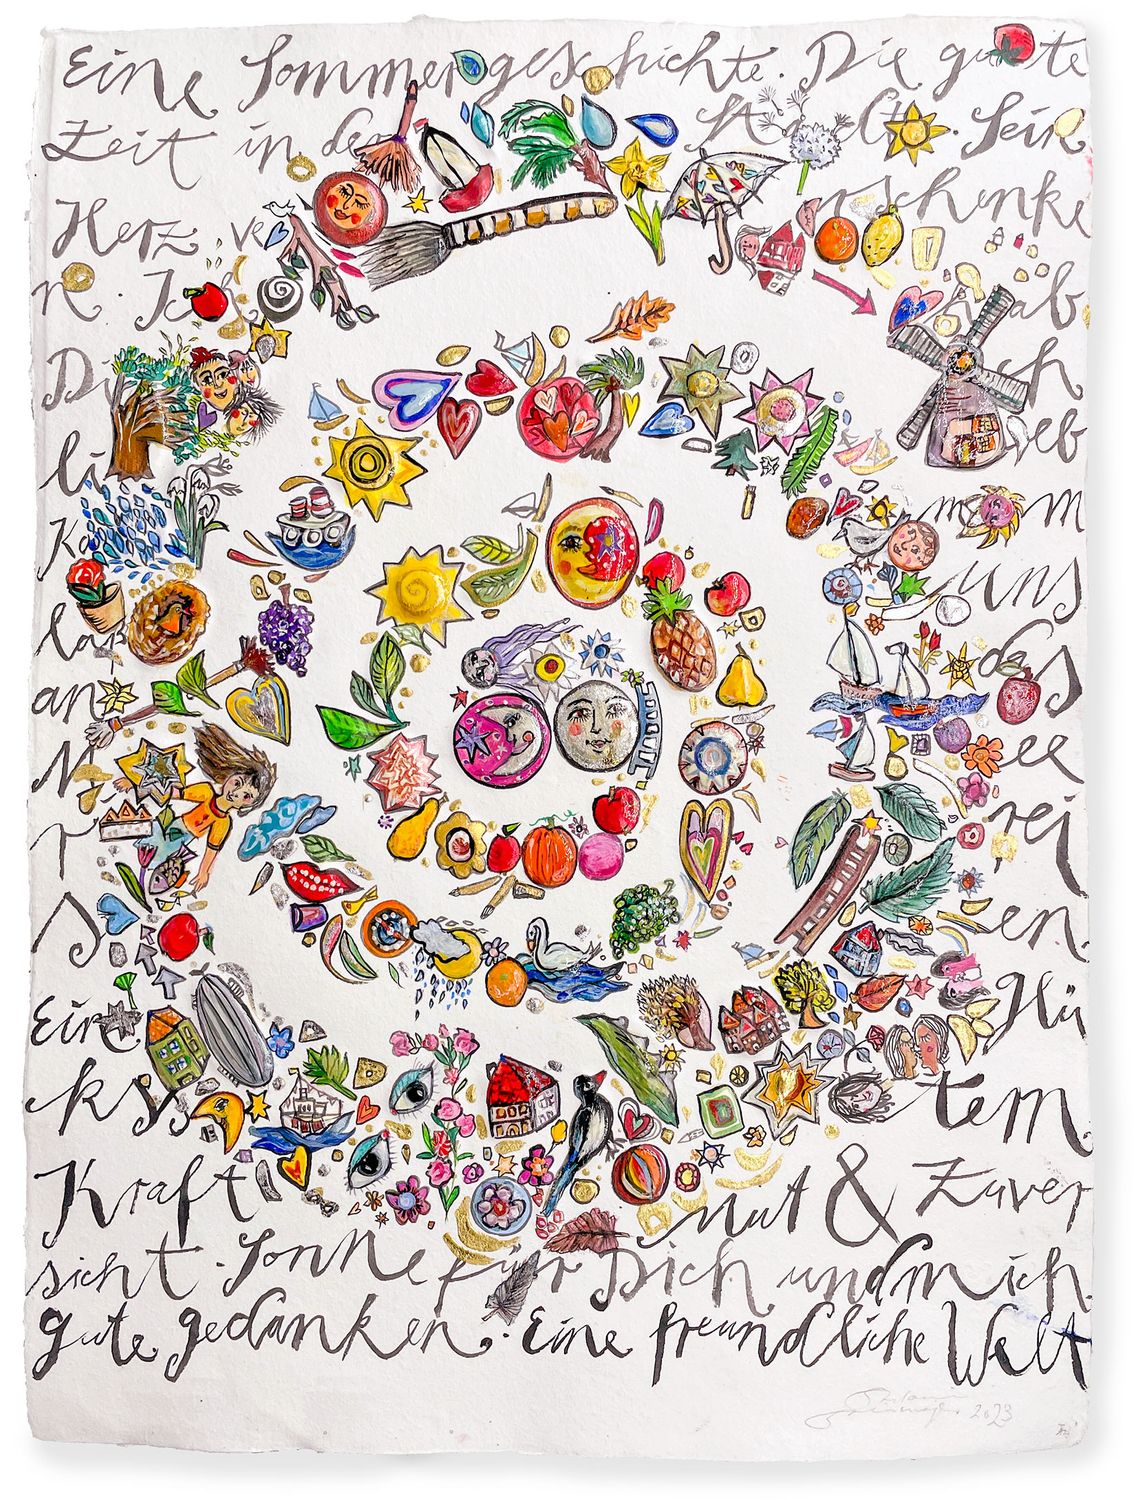 Eine Sommergeschichte. Die gute
Zeit in der Stadt. Sein
Herz verschenke
n. Ich hab
Dich
lieb
Komm
uns
laß das
an
Meer
rei
sen.
Ein Glü
cks tem
Kraft Mut & Zuver
sicht. Sonne für Dich und mich.
gute gedanken. Eine freundliche Welt
2023